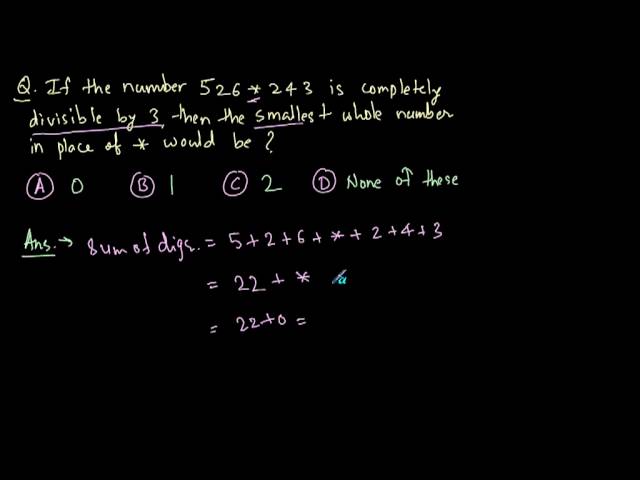 Q. If the number 526*243 is completely
divisible by 3, then the smallest whole number
in place of * would be ?
A 0 B 1 C 2 D None of these
Ans.→ Sum of digs. = 5+2+6+*+2+4+3
= 22 + *
= 22+0 =